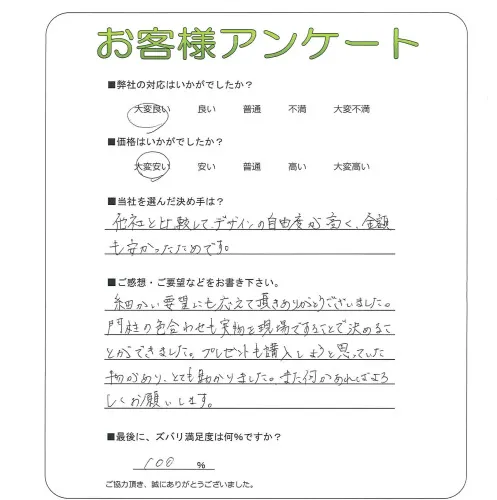 お客様アンケート
■弊社の対応はいかがでしたか?
大変良い 良い 普通 不満 大変不満
■価格はいかがでしたか?
大変安い 安い 普通 高い 大変高い
■当社を選んだ決め手は?
他社と比較して、デザインの自由度が高く、金額
も安かったためです。
■ご感想・ご要望などをお書き下さい。
細かい要望にも応えて頂きありがとうございました。
門柱の色合わせも実物を現場ですることで決めるこ
とができました。プレゼントも購入しようと思っていた
物があり、とても助かりました。また何かあればよろ
しくお願いします。
■最後に、ズバリ満足度は何%ですか?
100 %
ご協力頂き、誠にありがとうございました。